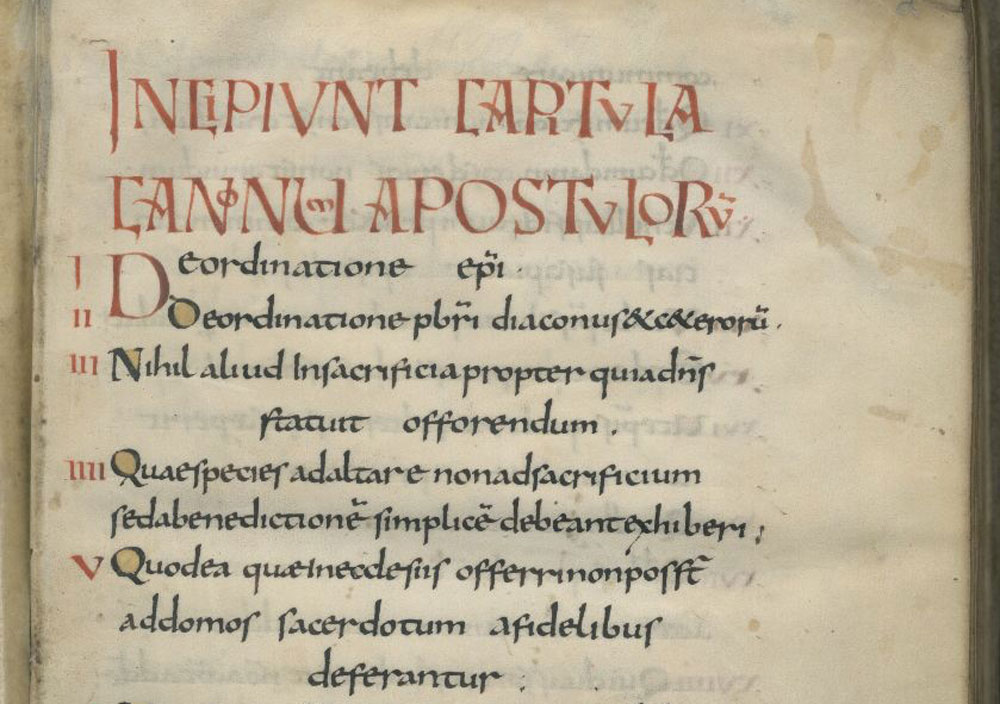 INCIPIUNT CAPTULA
CANNONUM APOSTULORŪ
I Deordinatione ep̄i.
II Deordinatione pbr̄i diaconus & c&erorū.
III Nihil aliud Insacrificia propter quia dn̄s
statuit offorendum.
IIII Quae species ad altare non ad sacrificium
sed a benedictionē simplicē debeant exhiberi;
V Quod ea quae In ecclesiis offerri non posst̄
ad domos sacerdotum a fidelibus
deferantur.